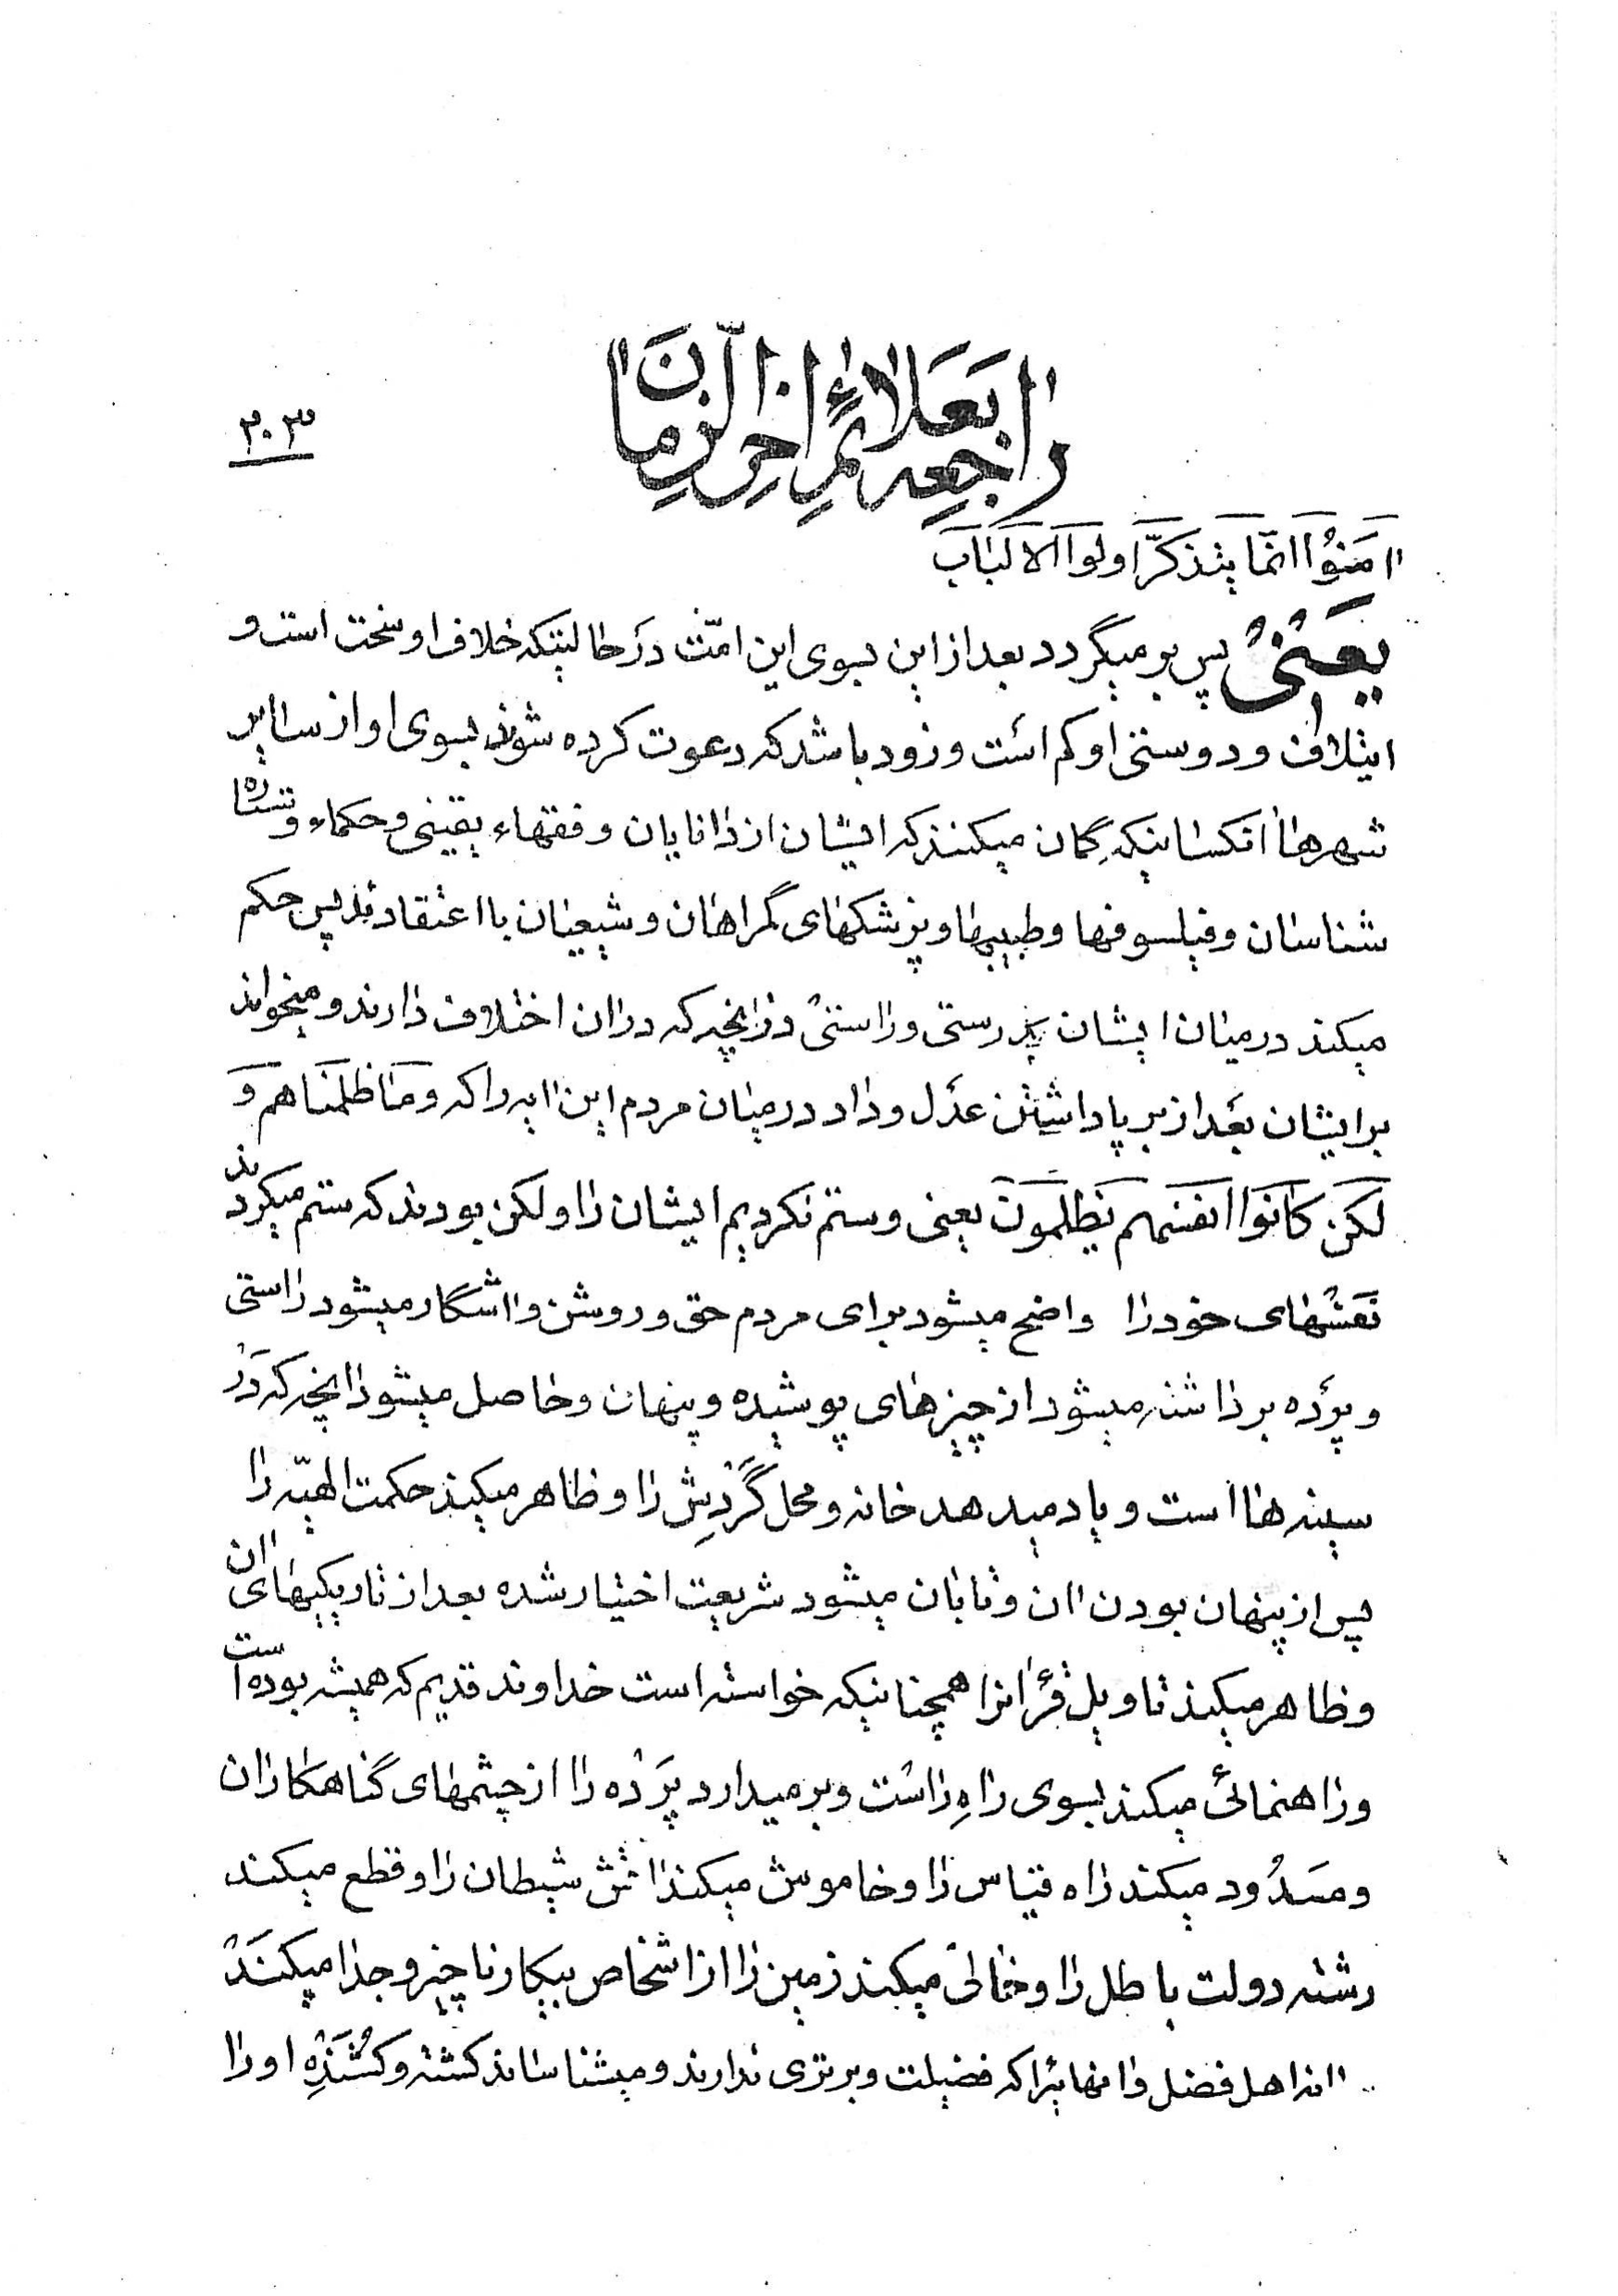 راجعه بعلائم اخر الزمان
۲۰۳
اٰمَنُوا انّما یتذکّر اولوا الالباب
یعنی پس بر میگردد بعد از این بسوی این امّت در حالیتیکه خلاف او سخت است و
ایتلاف و دوستی او کم است و زود باشد که دعوت کرده شوند بسوی او از سایر
شهرها انکسانیکه گمان میکنند که ایشان از دانایان و فقهاء یقینی و حکماء و ستاره
شناسان و فیلسوفها و طبیبها و پزشکهای گمراهان و شیعیان با اعتقادند پس حکم
میکند در میان ایشان بدرستی و راستی در انچه که در ان اختلاف دارند و میخواند
بر ایشان بعد از بر پا داشتن عدل و داد در میان مردم این ایه را که و ما ظلمناهم و
لکن کانوا انفسهم یظلمون یعنی و ستم نکردیم ایشان را ولکن بودند که ستم میکردند
نفسهای خود را واضح میشود برای مردم حق و روشن و اشکار میشود راستی
و پرده برداشته میشود از چیزهای پوشیده و پنهان و حاصل میشود انچه که در
سینه ها است و یاد میدهد خانه و محل گردش را و ظاهر میکند حکمت الهیّه را
پس از پنهان بودن ان و تابان میشود شریعت اختیار شده بعد از تاریکیهای ان
و ظاهر میکند تاویل قرانرا همچنانیکه خواسته است خداوند قدیم که همیشه بوده است
و راهنمائی میکند بسوی راهِ راست و بر میدارد پرده را از چشمهای گناهکاران
و مسدود میکند راه قیاس را و خاموش میکند اتش شیطان را و قطع میکند
رشته دولت باطل را و خالی میکند زمین را از اشخاص بیکار ناچیز و جدا میکند
اند اهل فضل و انهائیرا که فضیلت و برتری ندارند و میشناساند کشته و کشندهِ او را